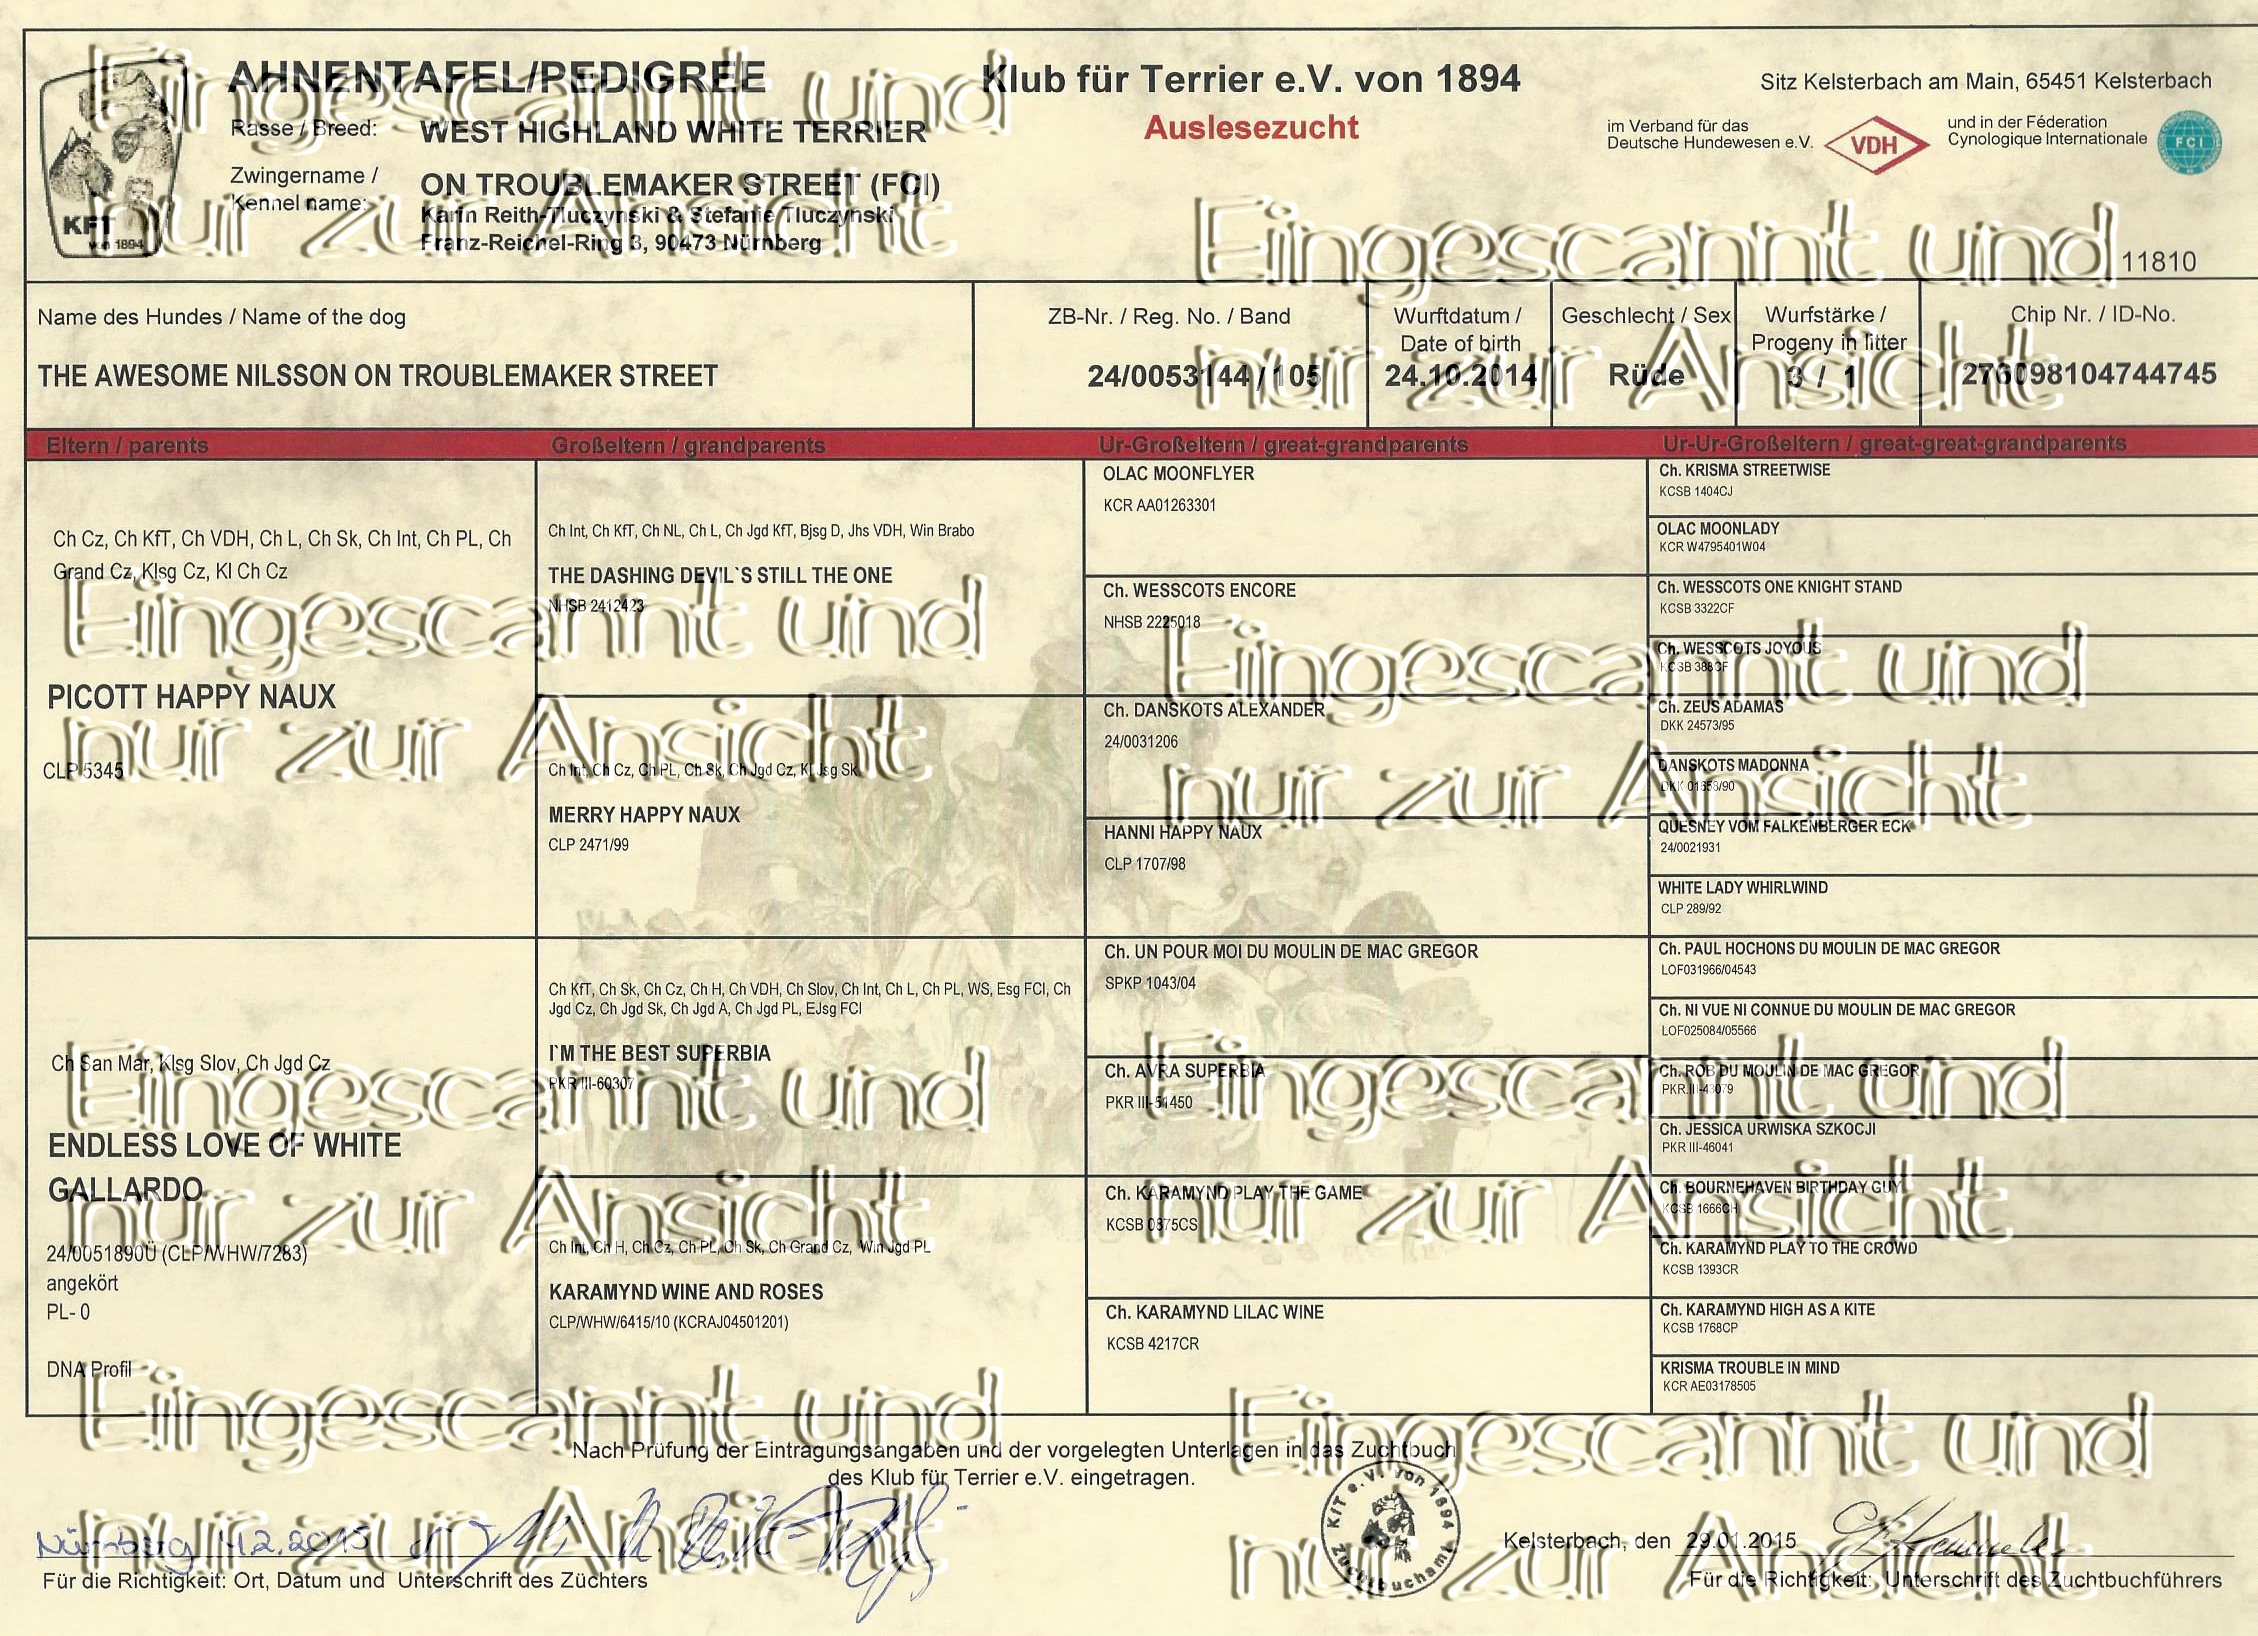 AHNENTAFEL/PEDIGREE
Klub für Terrier e.V. von 1894
Sitz Kelsterbach am Main, 65451 Kelsterbach
Auslesezucht
Rasse / Breed: WEST HIGHLAND WHITE TERRIER
im Verband für das
Deutsche Hundewesen e.V.
VDH
und in der Féderation
Cynologique Internationale
FCI
Zwingername /
Kennel name:
ON TROUBLEMAKER STREET (FCI)
Karin Reith-Tluczynski & Stefanie Tluczynski
Franz-Reichel-Ring 3, 90473 Nürnberg
KFT
von 1894
11810
Eingescannt und
nur zur Ansicht
Eingescannt und
nur zur Ansicht
Name des Hundes / Name of the dog
THE AWESOME NILSSON ON TROUBLEMAKER STREET
ZB-Nr. / Reg. No. / Band
24/0053144 / 105
Wurftdatum /
Date of birth
24.10.2014
Geschlecht / Sex
Rüde
Wurfstärke /
Progeny in litter
3 / 1
Chip Nr. / ID-No.
276098104744745
Eltern / parents
Großeltern / grandparents
Ur-Großeltern / great-grandparents
Ur-Ur-Großeltern / great-great-grandparents
Ch Cz, Ch KfT, Ch VDH, Ch L, Ch Sk, Ch Int, Ch PL, Ch
Grand Cz, Klsg Cz, Kl Ch Cz
PICOTT HAPPY NAUX
CLP 5345
Ch San Mar, Klsg Slov, Ch Jgd Cz
ENDLESS LOVE OF WHITE
GALLARDO
24/0051890Ü (CLP/WHW/7283)
angekört
PL- 0
DNA Profil
Ch Int, Ch KfT, Ch NL, Ch L, Ch Jgd KfT, Bjsg D, Jhs VDH, Win Brabo
THE DASHING DEVIL`S STILL THE ONE
NHSB 2412423
Ch Int, Ch Cz, Ch PL, Ch Sk, Ch Jgd Cz, Kl Jsg Sk
MERRY HAPPY NAUX
CLP 2471/99
Ch KfT, Ch Sk, Ch Cz, Ch H, Ch VDH, Ch Slov, Ch Int, Ch L, Ch PL, WS, Esg FCI, Ch
Jgd Cz, Ch Jgd Sk, Ch Jgd A, Ch Jgd PL, EJsg FCI
I`M THE BEST SUPERBIA
PKR III-60307
Ch Int, Ch H, Ch Cz, Ch PL, Ch Sk, Ch Grand Cz, Win Jgd PL
KARAMYND WINE AND ROSES
CLP/WHW/6415/10 (KCRAJ04501201)
OLAC MOONFLYER
KCR AA01263301
Ch. WESSCOTS ENCORE
NHSB 2225018
Ch. DANSKOTS ALEXANDER
24/0031206
HANNI HAPPY NAUX
CLP 1707/98
Ch. UN POUR MOI DU MOULIN DE MAC GREGOR
SPKP 1043/04
Ch. AVRA SUPERBIA
PKR III-51450
Ch. KARAMYND PLAY THE GAME
KCSB 0875CS
Ch. KARAMYND LILAC WINE
KCSB 4217CR
Ch. KRISMA STREETWISE
KCSB 1404CJ
OLAC MOONLADY
KCR W4795401W04
Ch. WESSCOTS ONE KNIGHT STAND
KCSB 3322CF
Ch. WESSCOTS JOYOUS
KCSB 388CF
Ch. ZEUS ADAMAS
DKK 24573/95
DANSKOTS MADONNA
DKK 01658/90
QUESNEY VOM FALKENBERGER ECK
24/0021931
WHITE LADY WHIRLWIND
CLP 289/92
Ch. PAUL HOCHONS DU MOULIN DE MAC GREGOR
LOF031966/04543
Ch. NI VUE NI CONNUE DU MOULIN DE MAC GREGOR
LOF025084/05566
Ch. ROB DU MOULIN DE MAC GREGOR
PKR.III-43079
Ch. JESSICA URWISKA SZKOCJI
PKR III-46041
Ch. BOURNEHAVEN BIRTHDAY GUY
KCSB 1666CH
Ch. KARAMYND PLAY TO THE CROWD
KCSB 1393CR
Ch. KARAMYND HIGH AS A KITE
KCSB 1768CP
KRISMA TROUBLE IN MIND
KCR AE03178505
Eingescannt und
nur zur Ansicht
Eingescannt und
nur zur Ansicht
Eingescannt und
nur zur Ansicht
Eingescannt und
nur zur Ansicht
Eingescannt und
nur zur Ansicht
Eingescannt und
nur zur Ansicht
Nach Prüfung der Eintragungsangaben und der vorgelegten Unterlagen in das Zuchtbuch
des Klub für Terrier e.V. eingetragen.
Nürnberg 4.2.2015
Für die Richtigkeit: Ort, Datum und Unterschrift des Züchters
KfT e.V. von 1894
Zuchtbuchamt
Kelsterbach, den 29.01.2015
Für die Richtigkeit: Unterschrift des Zuchtbuchführers